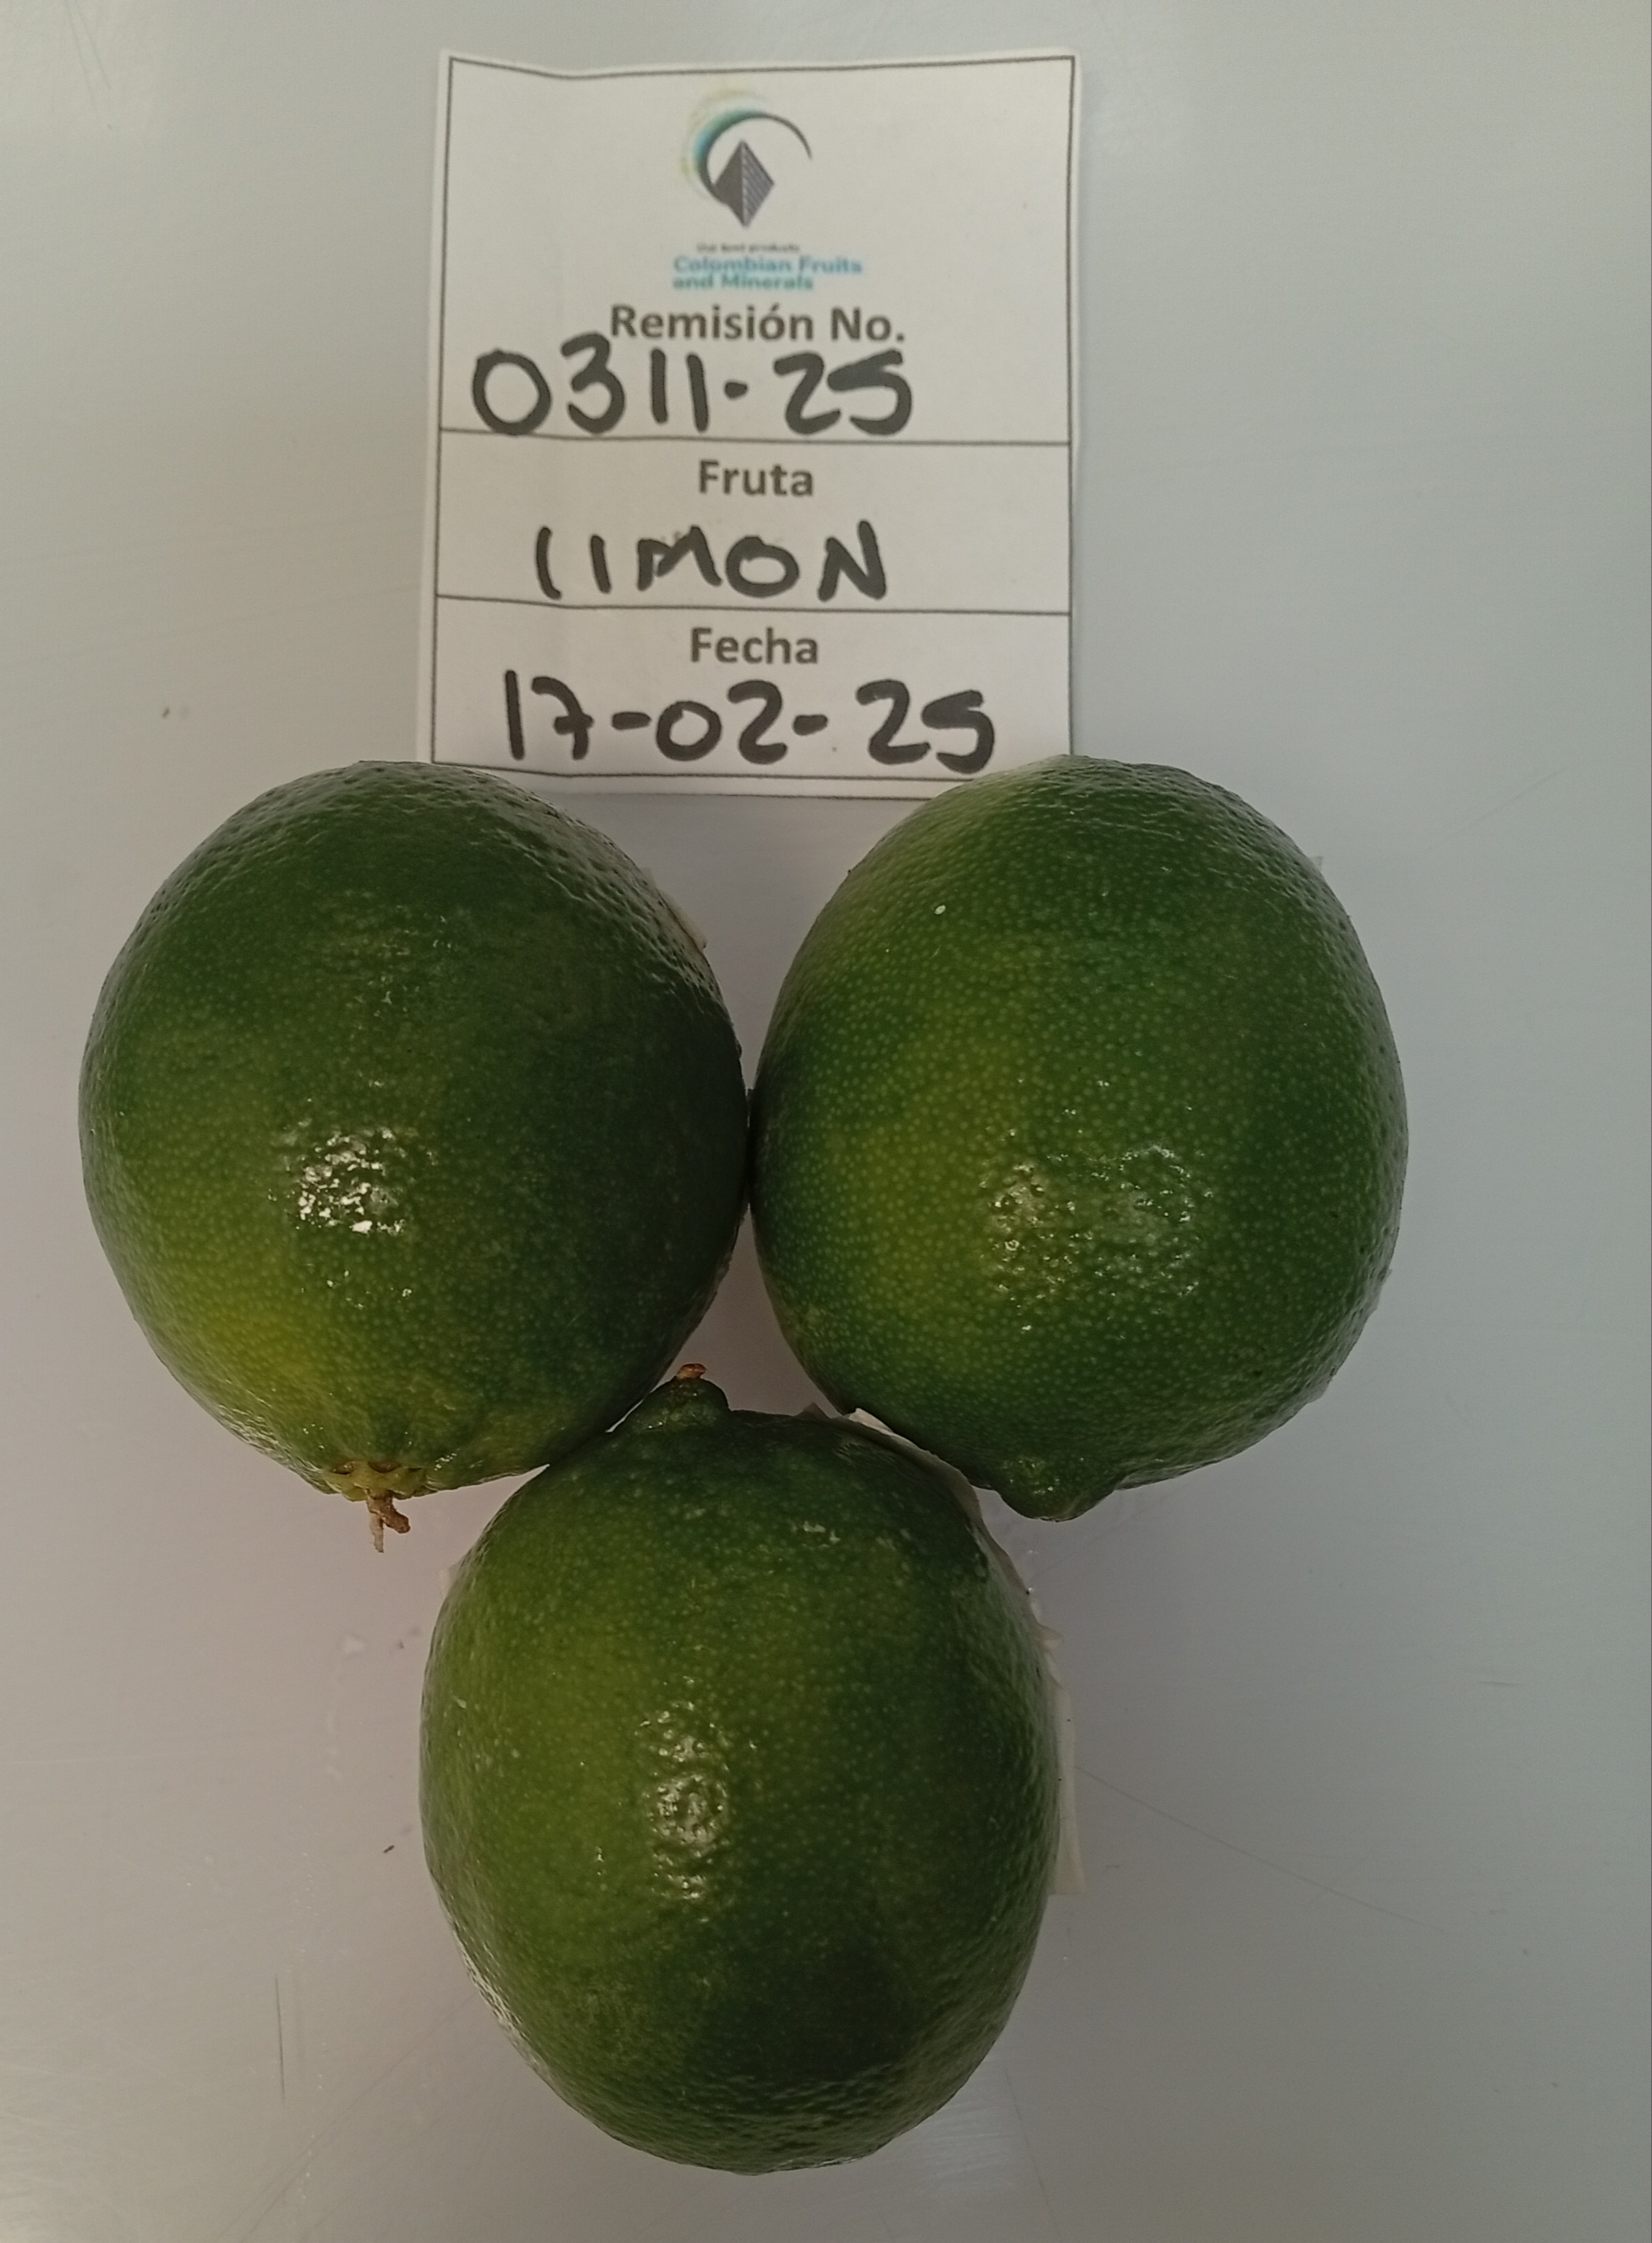 Our best products
Colombian Fruits
and Minerals
Remisión No.
0311-25
Fruta
LIMON
Fecha
17-02-25